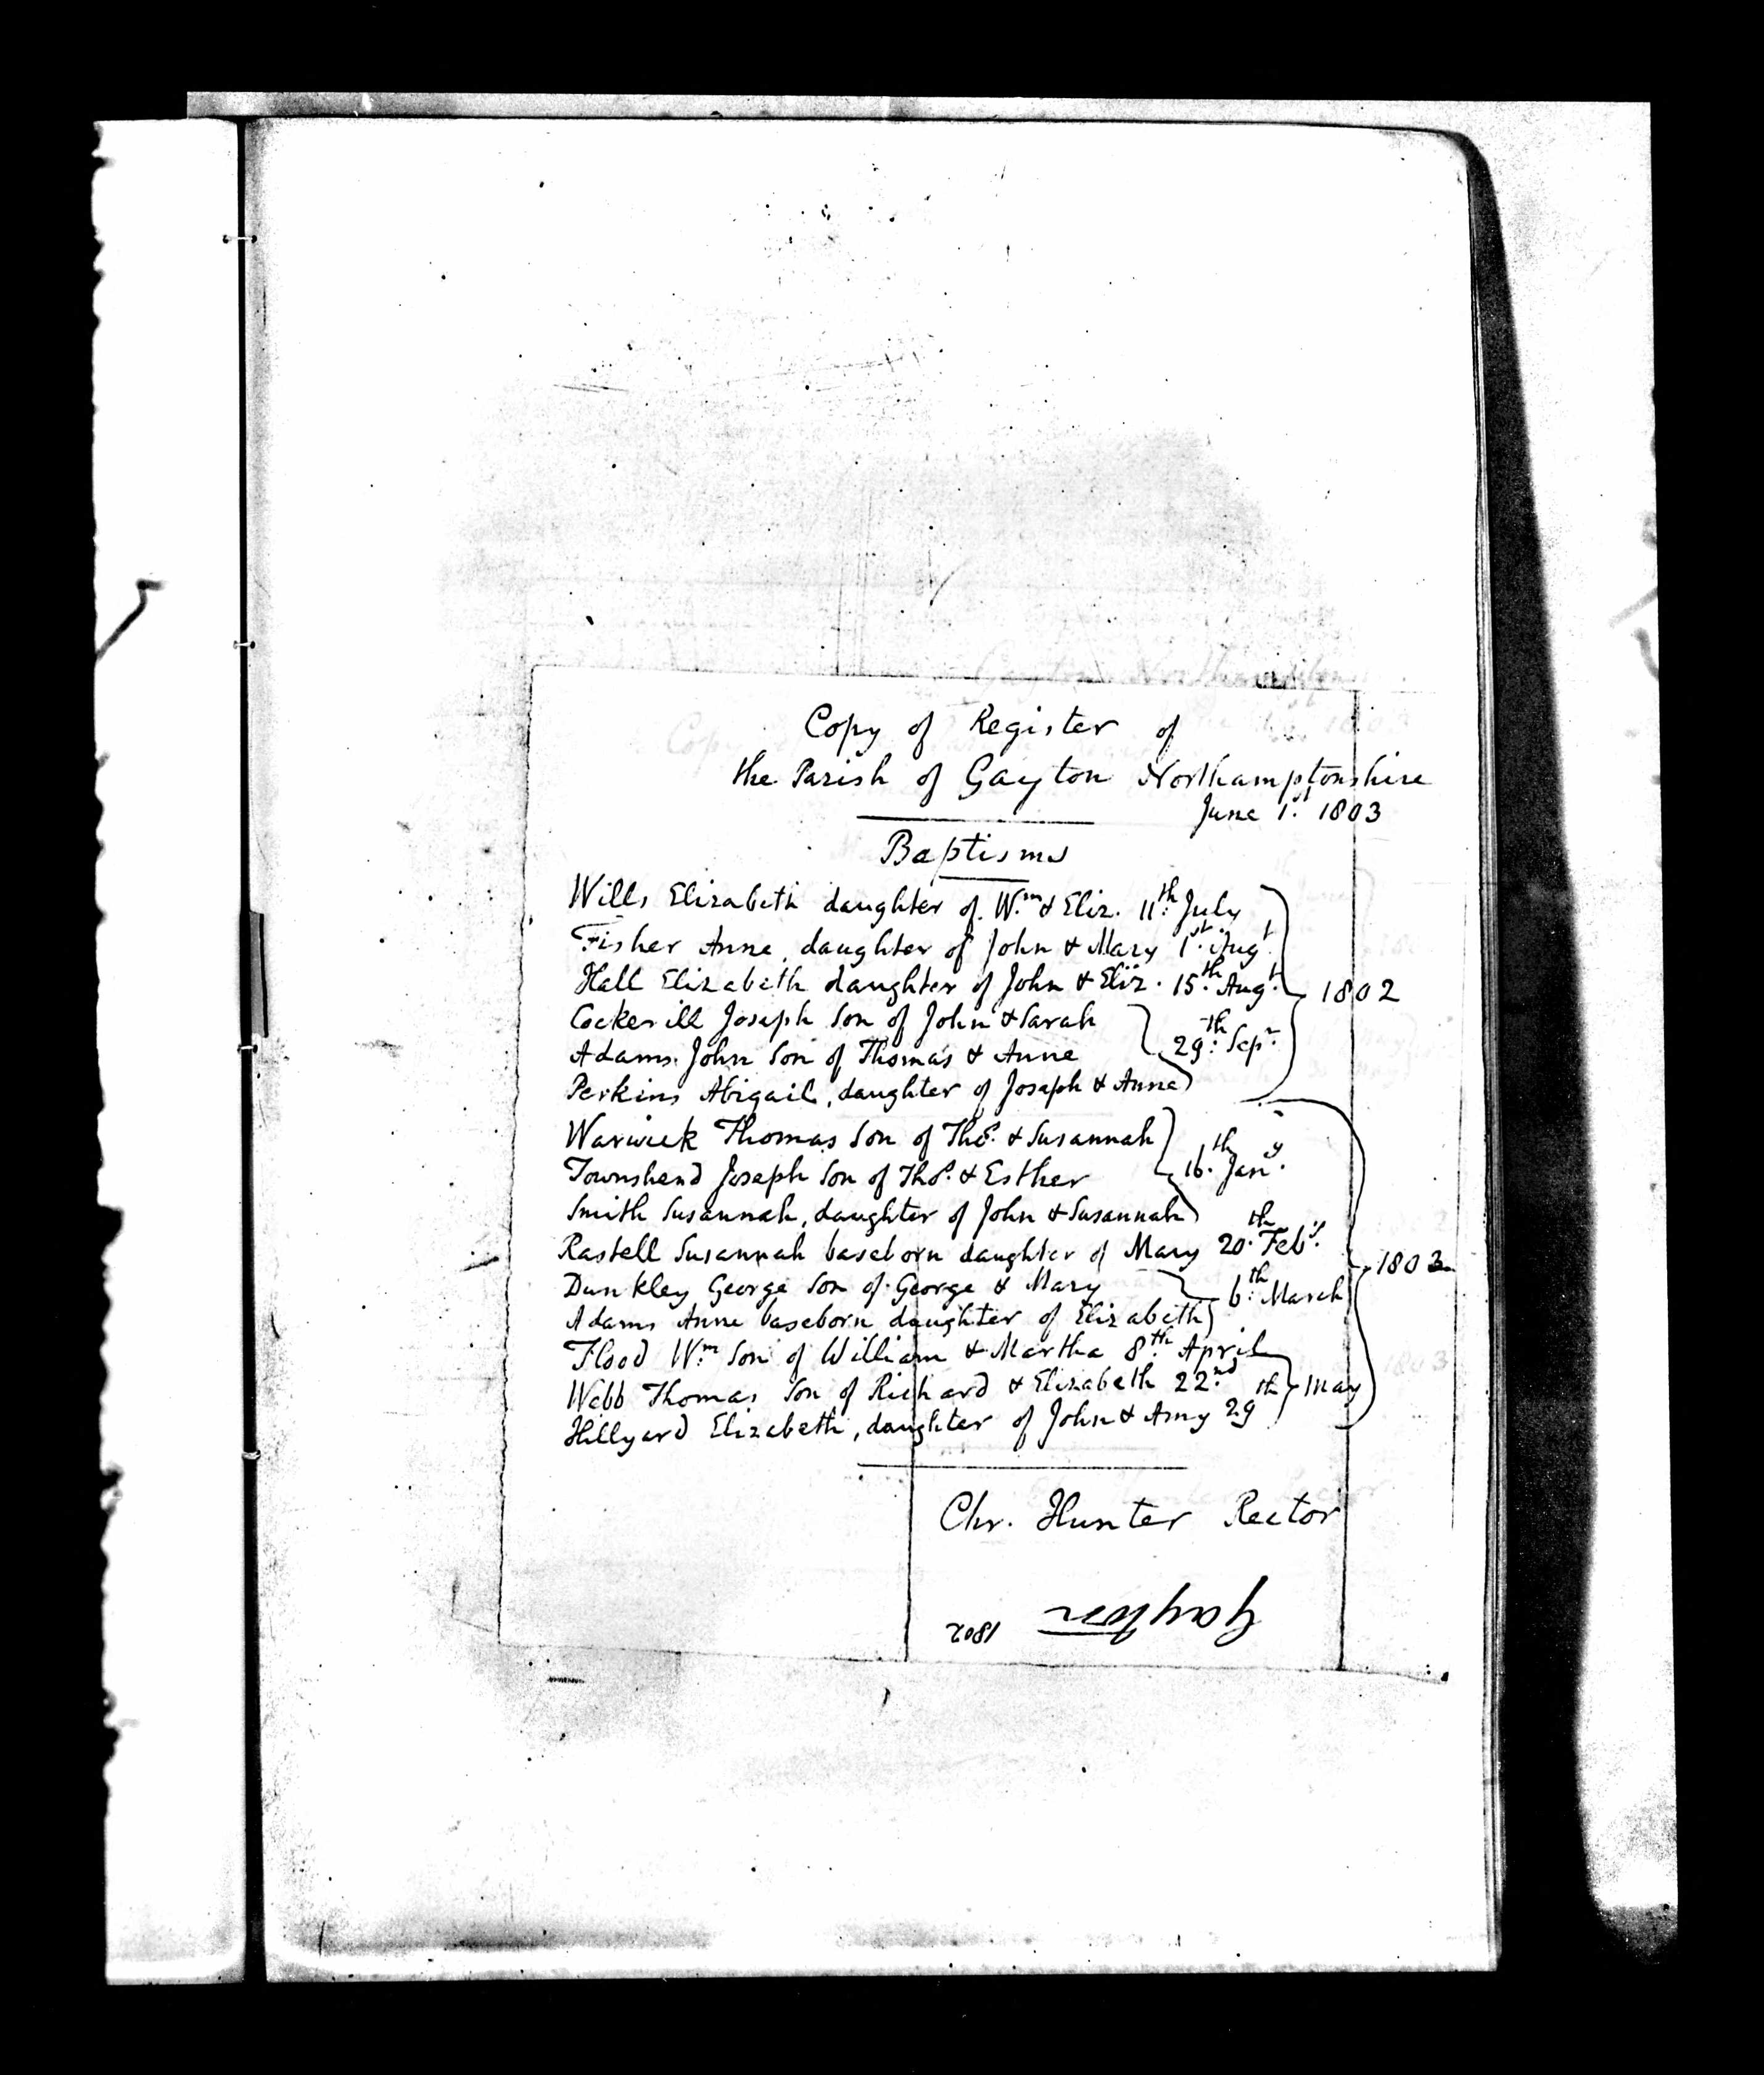 Copy of Register of
the Parish of Gayton Northamptonshire
June 1st 1803
Baptisms
Wills Elizabeth daughter of Wm & Eliz. 11th July
Fisher Anne, daughter of John & Mary 1st Augt
Hall Elizabeth daughter of John & Eliz. 15th Augt 1802
Cockerill Joseph Son of John & Sarah
Adams John Son of Thomas & Anne 29th Sepr
Perkins Abigail, daughter of Joseph & Anne
Warwick Thomas Son of Thos & Susannah
Townshend Joseph Son of Thos & Esther 16th Jany
Smith Susannah, daughter of John & Susannah
Rastell Susannah baseborn daughter of Mary 20th Feby 1803
Dunkley George Son of George & Mary
Adams Anne baseborn daughter of Elizabeth 6th March
Flood Wm Son of William & Martha 8th April
Webb Thomas Son of Richard & Elizabeth 22nd
Hillyard Elizabeth, daughter of John & Amy 29th May
Chr. Hunter Rector
Gayton 1802